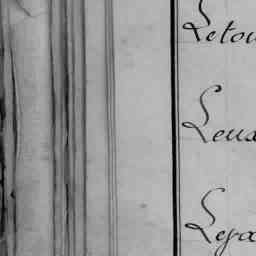 Letou
Leva
Leya